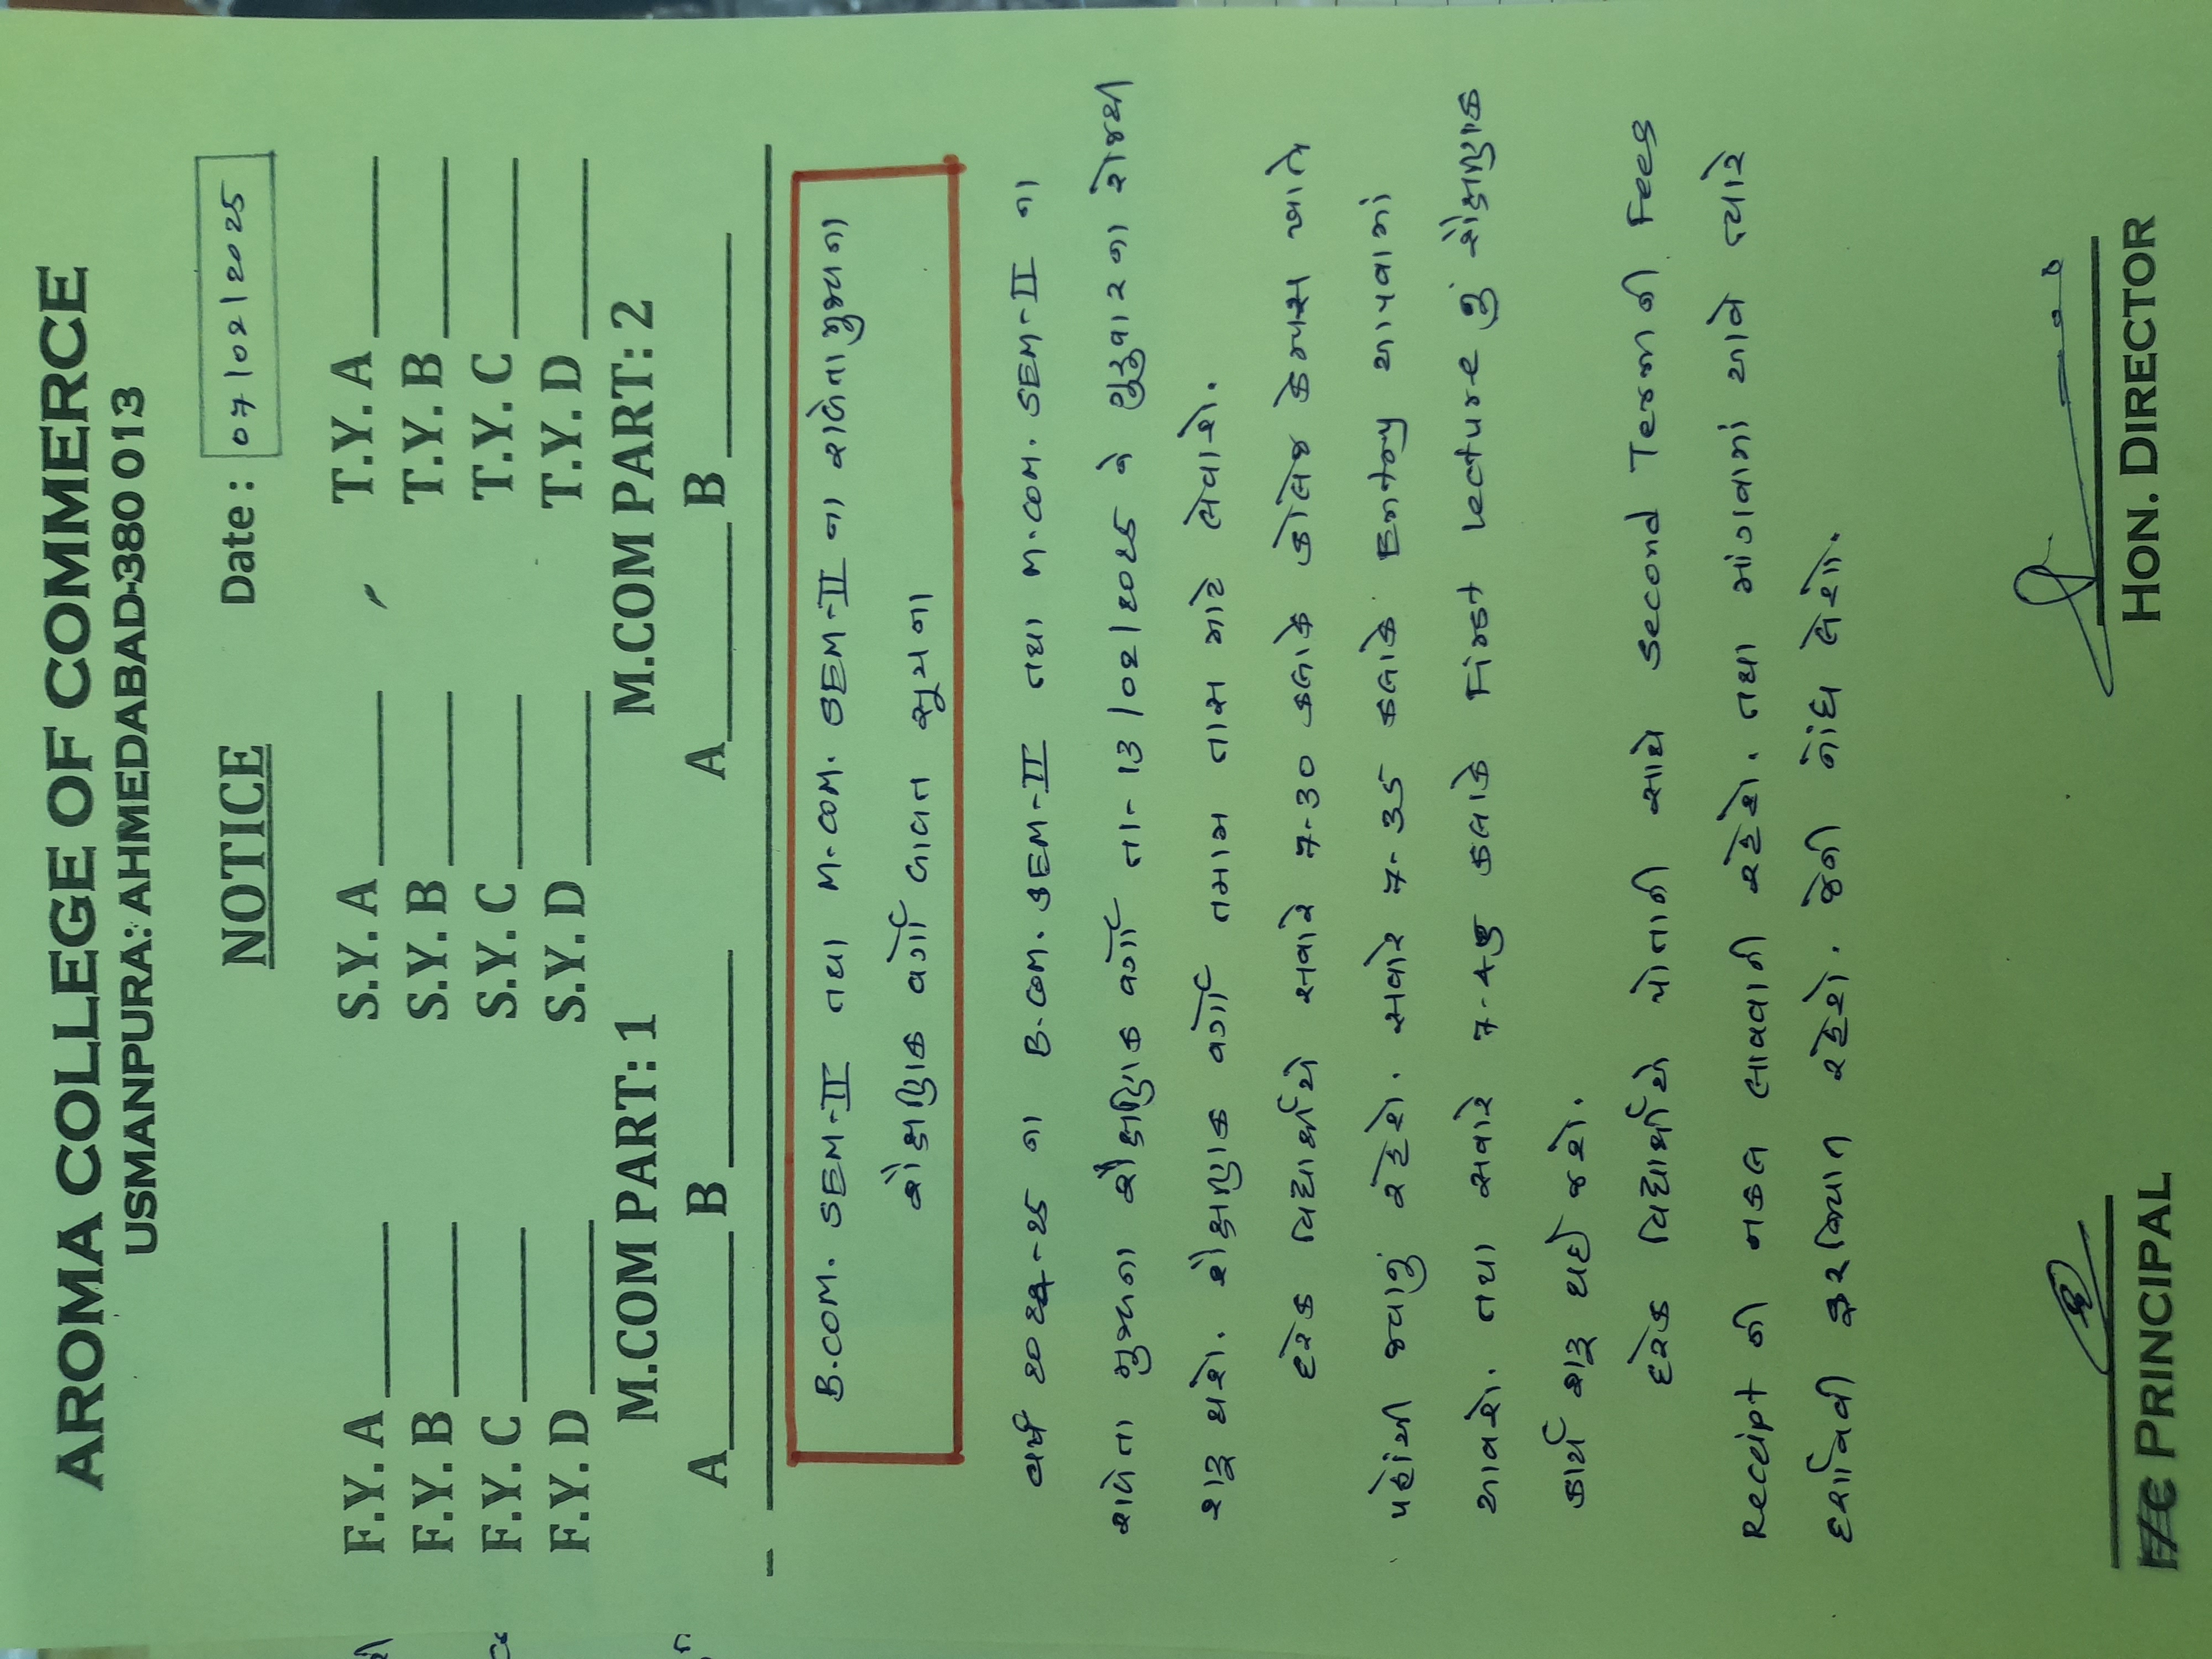 AROMA COLLEGE OF COMMERCE
USMANPURA: AHMEDABAD-380 013
NOTICE Date: 07/02/2025
F.Y. A ____ S.Y. A ____ T.Y. A ____
F.Y. B ____ S.Y. B ____ T.Y. B ____
F.Y. C ____ S.Y. C ____ T.Y. C ____
F.Y. D ____ S.Y. D ____ T.Y. D ____
M.COM PART: 1 M.COM PART: 2
A ____ B ____ A ____ B ____
B.COM. SEM-II તથા M.COM. SEM-II ના
શૈક્ષણિક વર્ગો બાબત સુચના
વર્ષ ૨૦૨૪-૨૫ ના B.COM. SEM-II તથા M.COM. SEM-II ના
શૈક્ષણિક વર્ગો તા-13/02/૨૦૨૫ ને ગુરુવાર ના રોજથી
શરૂ થશે. શૈક્ષણિક વર્ગો તમામ તાસ માટે લેવાશે.
દરેક વિદ્યાર્થીએ સવારે 7-30 કલાકે કોલેજ કેમ્પસ ખાતે
પહોંચી જવાનું રહેશે. સવારે 7-35 કલાકે Entry આપવામાં
આવશે. તથા સવારે કલાકે First Lecture નું શૈક્ષણિક
કાર્ય શરૂ થઈ જશે.
દરેક વિદ્યાર્થીએ પોતાની સાથે Second Term ની Fees
Receipt ની નકલ લાવવાની રહેશે. તથા માંગવામાં આવે ત્યારે
દર્શાવવી ફરજિયાત રહેશે. જેની નોંધ લેશો.
PRINCIPAL HON. DIRECTOR